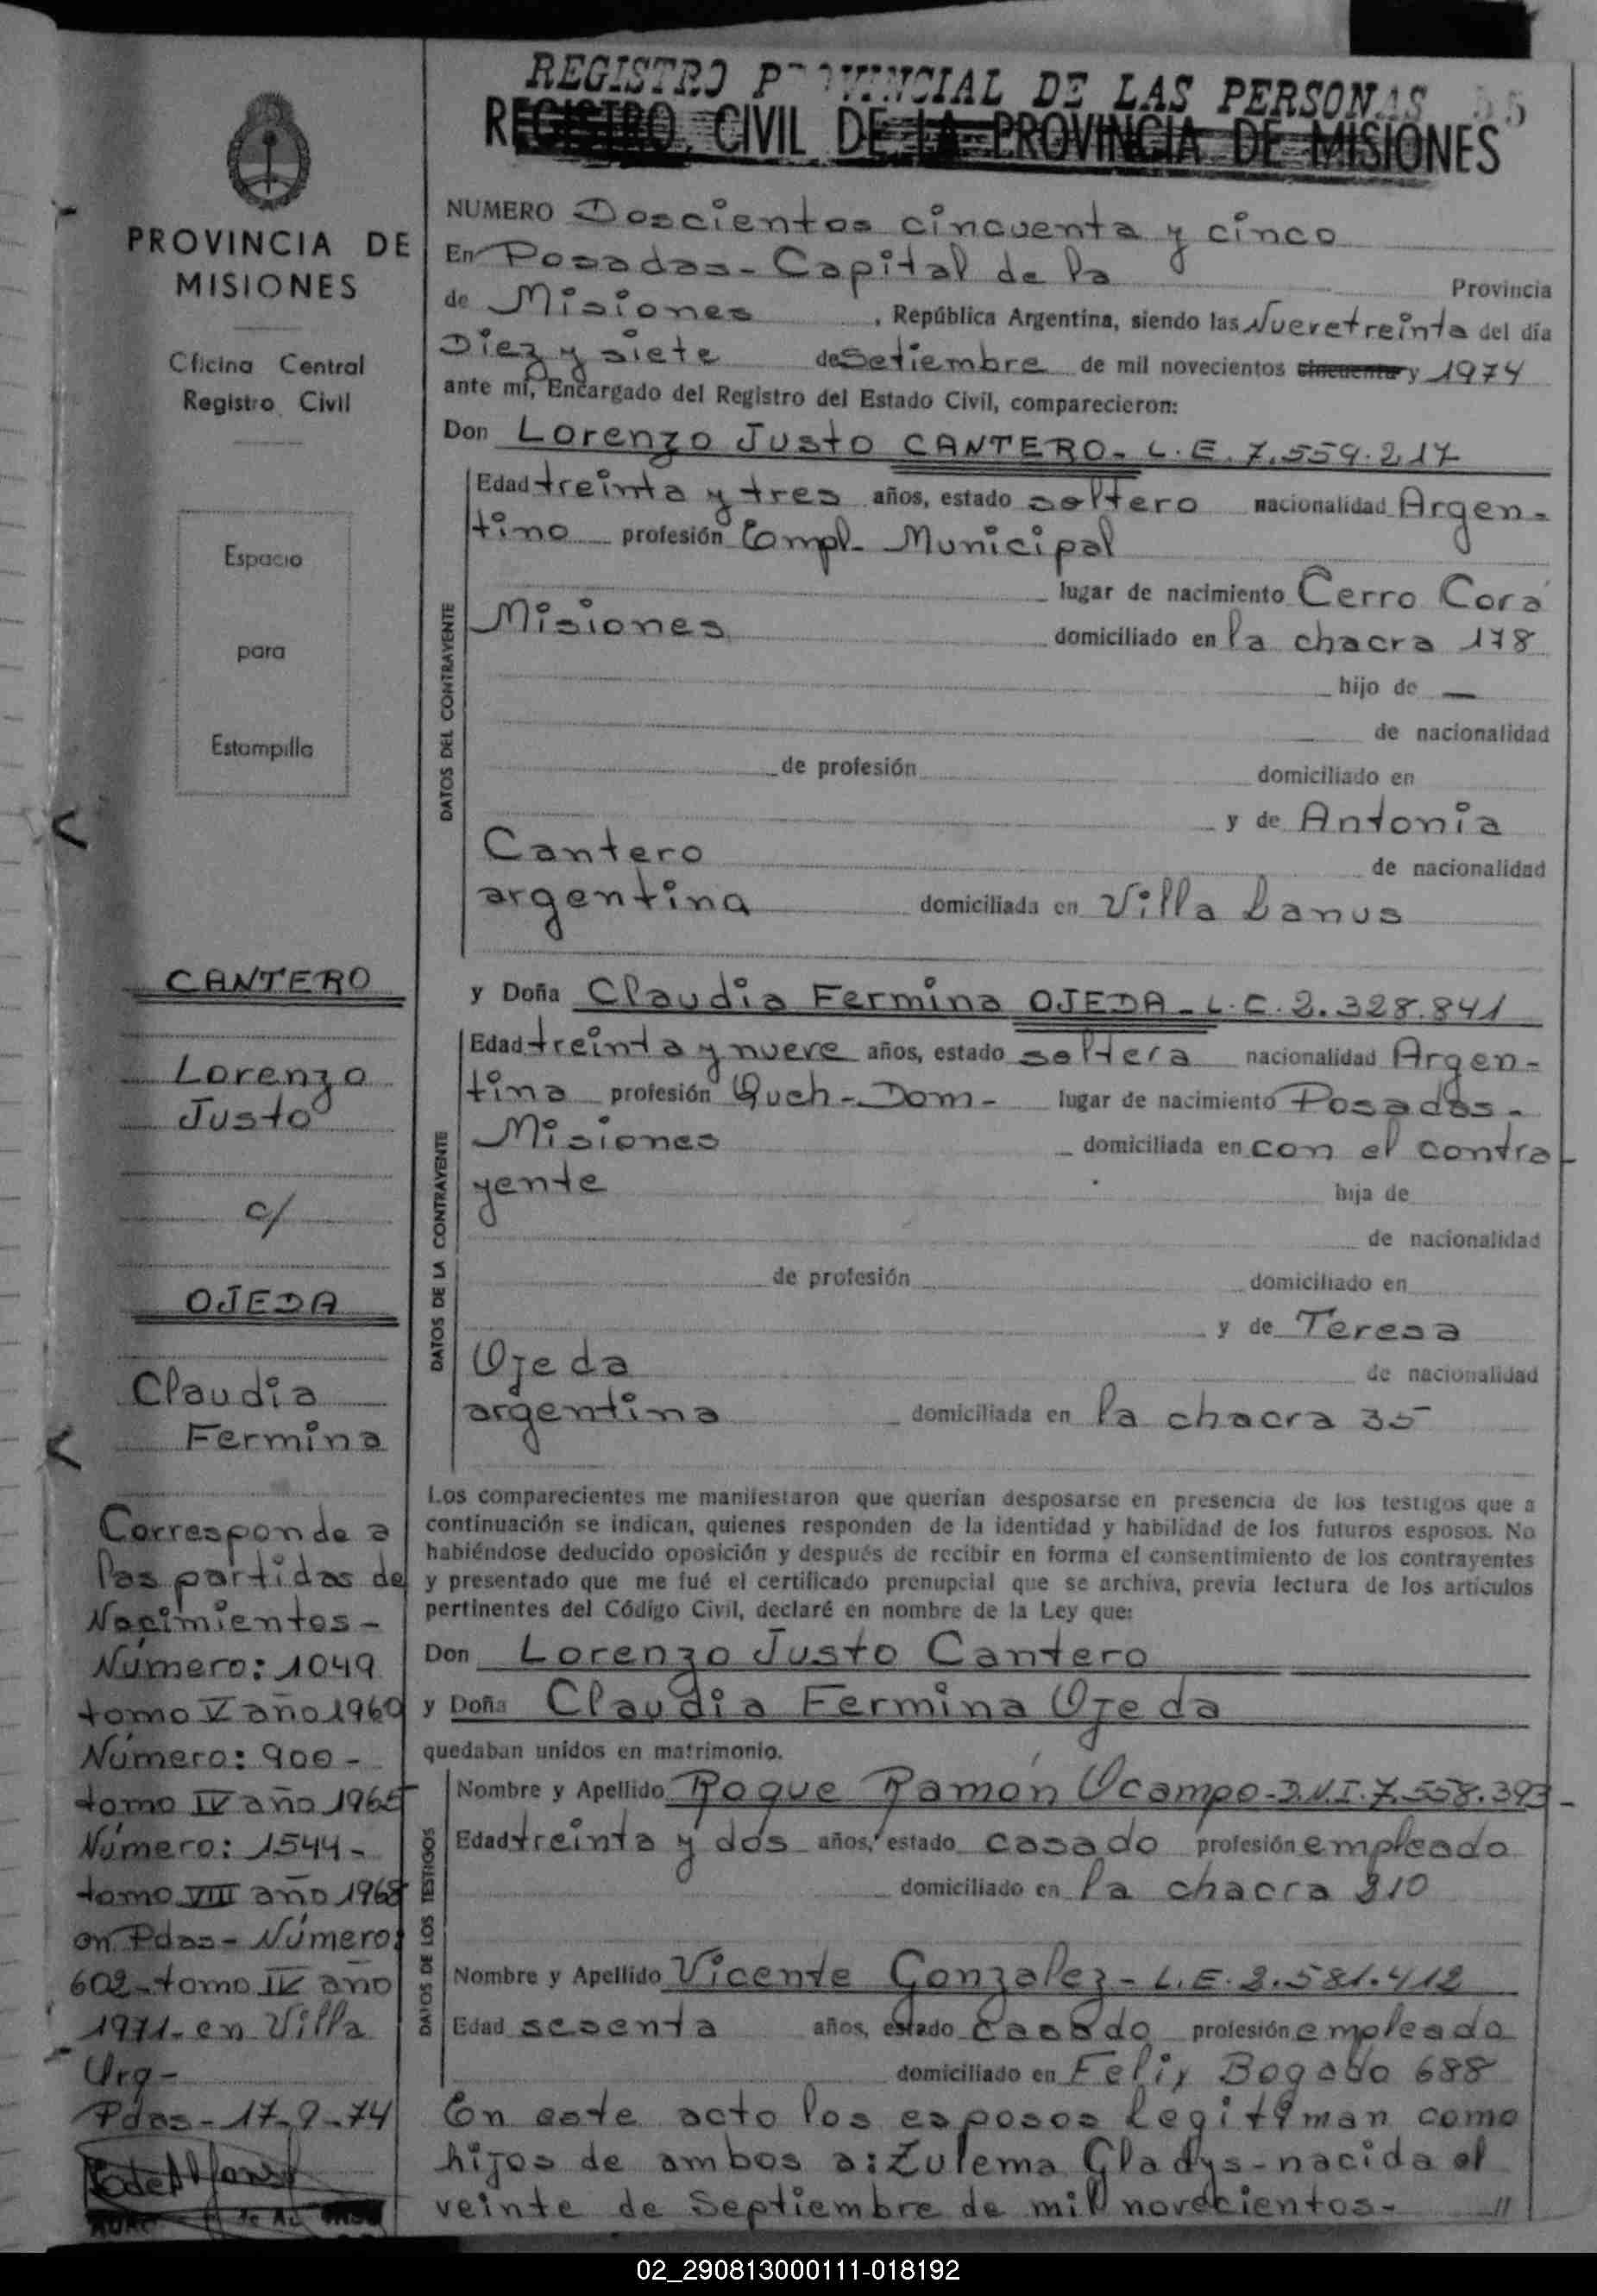 REGISTRO PROVINCIAL DE LAS PERSONAS 55
REGISTRO CIVIL DE LA PROVINCIA DE MISIONES
PROVINCIA DE
MISIONES
Oficina Central
Registro Civil
Espacio
para
Estampilla
CANTERO
Lorenzo
Justo
c/
OJEDA
Claudia
Fermina
Corresponde a
las partidas de
Nacimientos -
Número: 1049
tomo V año 1960
Número: 900 -
tomo IV año 1965
Número: 1544 -
tomo VIII año 1968
en Pdas - Número:
602 - tomo IV año
1971 - en Villa
Urq -
Pdas - 17-9-74
NUMERO Doscientos cincuenta y cinco
En Posadas - Capital de la Provincia
de Misiones, República Argentina, siendo las Nueve treinta del día
Diez y siete de Setiembre de mil novecientos cincuenta y 1974
ante mí, Encargado del Registro del Estado Civil, comparecieron:
Don Lorenzo Justo CANTERO - L.E. 7.559.217
DATOS DEL CONTRAYENTE
Edad treinta y tres años, estado soltero nacionalidad Argen-
tino profesión Empl- Municipal
lugar de nacimiento Cerro Corá
Misiones domiciliado en la chacra 178
hijo de —
de nacionalidad
de profesión domiciliado en
y de Antonia
Cantero de nacionalidad
argentina domiciliada en Villa Lanus
y Doña Claudia Fermina OJEDA - L.C. 2.328.841
DATOS DE LA CONTRAYENTE
Edad treinta y nueve años, estado soltera nacionalidad Argen-
tina profesión Queh-Dom- lugar de nacimiento Posadas -
Misiones domiciliada en con el contra-
yente hija de
de nacionalidad
de profesión domiciliado en
y de Teresa
Ojeda de nacionalidad
argentina domiciliada en la chacra 35
Los comparecientes me manifestaron que querían desposarse en presencia de los testigos que a
continuación se indican, quienes responden de la identidad y habilidad de los futuros esposos. No
habiéndose deducido oposición y después de recibir en forma el consentimiento de los contrayentes
y presentado que me fué el certificado prenupcial que se archiva, previa lectura de los artículos
pertinentes del Código Civil, declaré en nombre de la Ley que:
Don Lorenzo Justo Cantero
y Doña Claudia Fermina Ojeda
quedaban unidos en matrimonio.
DATOS DE LOS TESTIGOS
Nombre y Apellido Roque Ramón Ocampo - D.N.I. 7.558.393 -
Edad treinta y dos años, estado casado profesión empleado
domiciliado en la chacra 210
Nombre y Apellido Vicente Gonzalez - L.E. 2.581.412
Edad sesenta años, estado casado profesión empleado
domiciliado en Felix Bogado 688
En este acto los esposos legitiman como
hijos de ambos a: Zulema Gladys - nacida el
veinte de Septiembre de mil novecientos - //
02_290813000111-018192